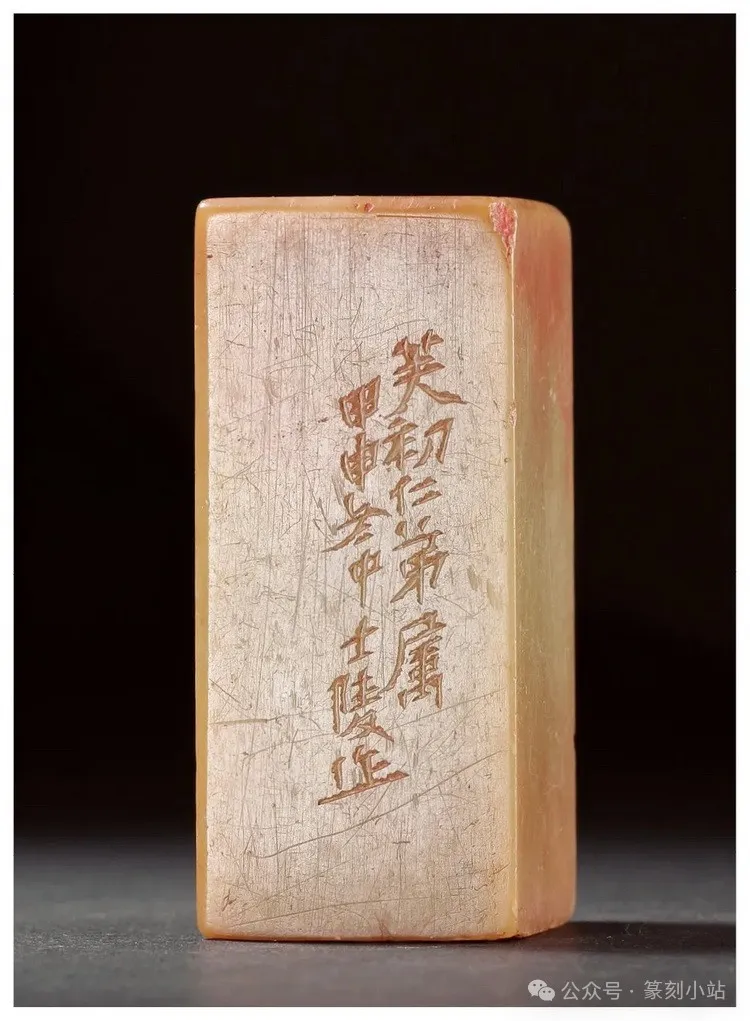 芙初仁弟属
甲申中士陵作
公众号·篆刻小站